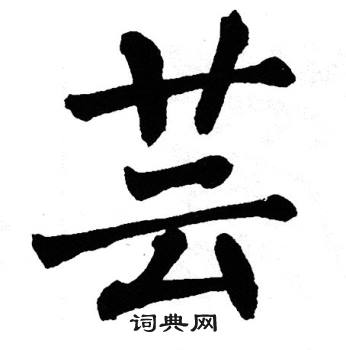 芸
词典网